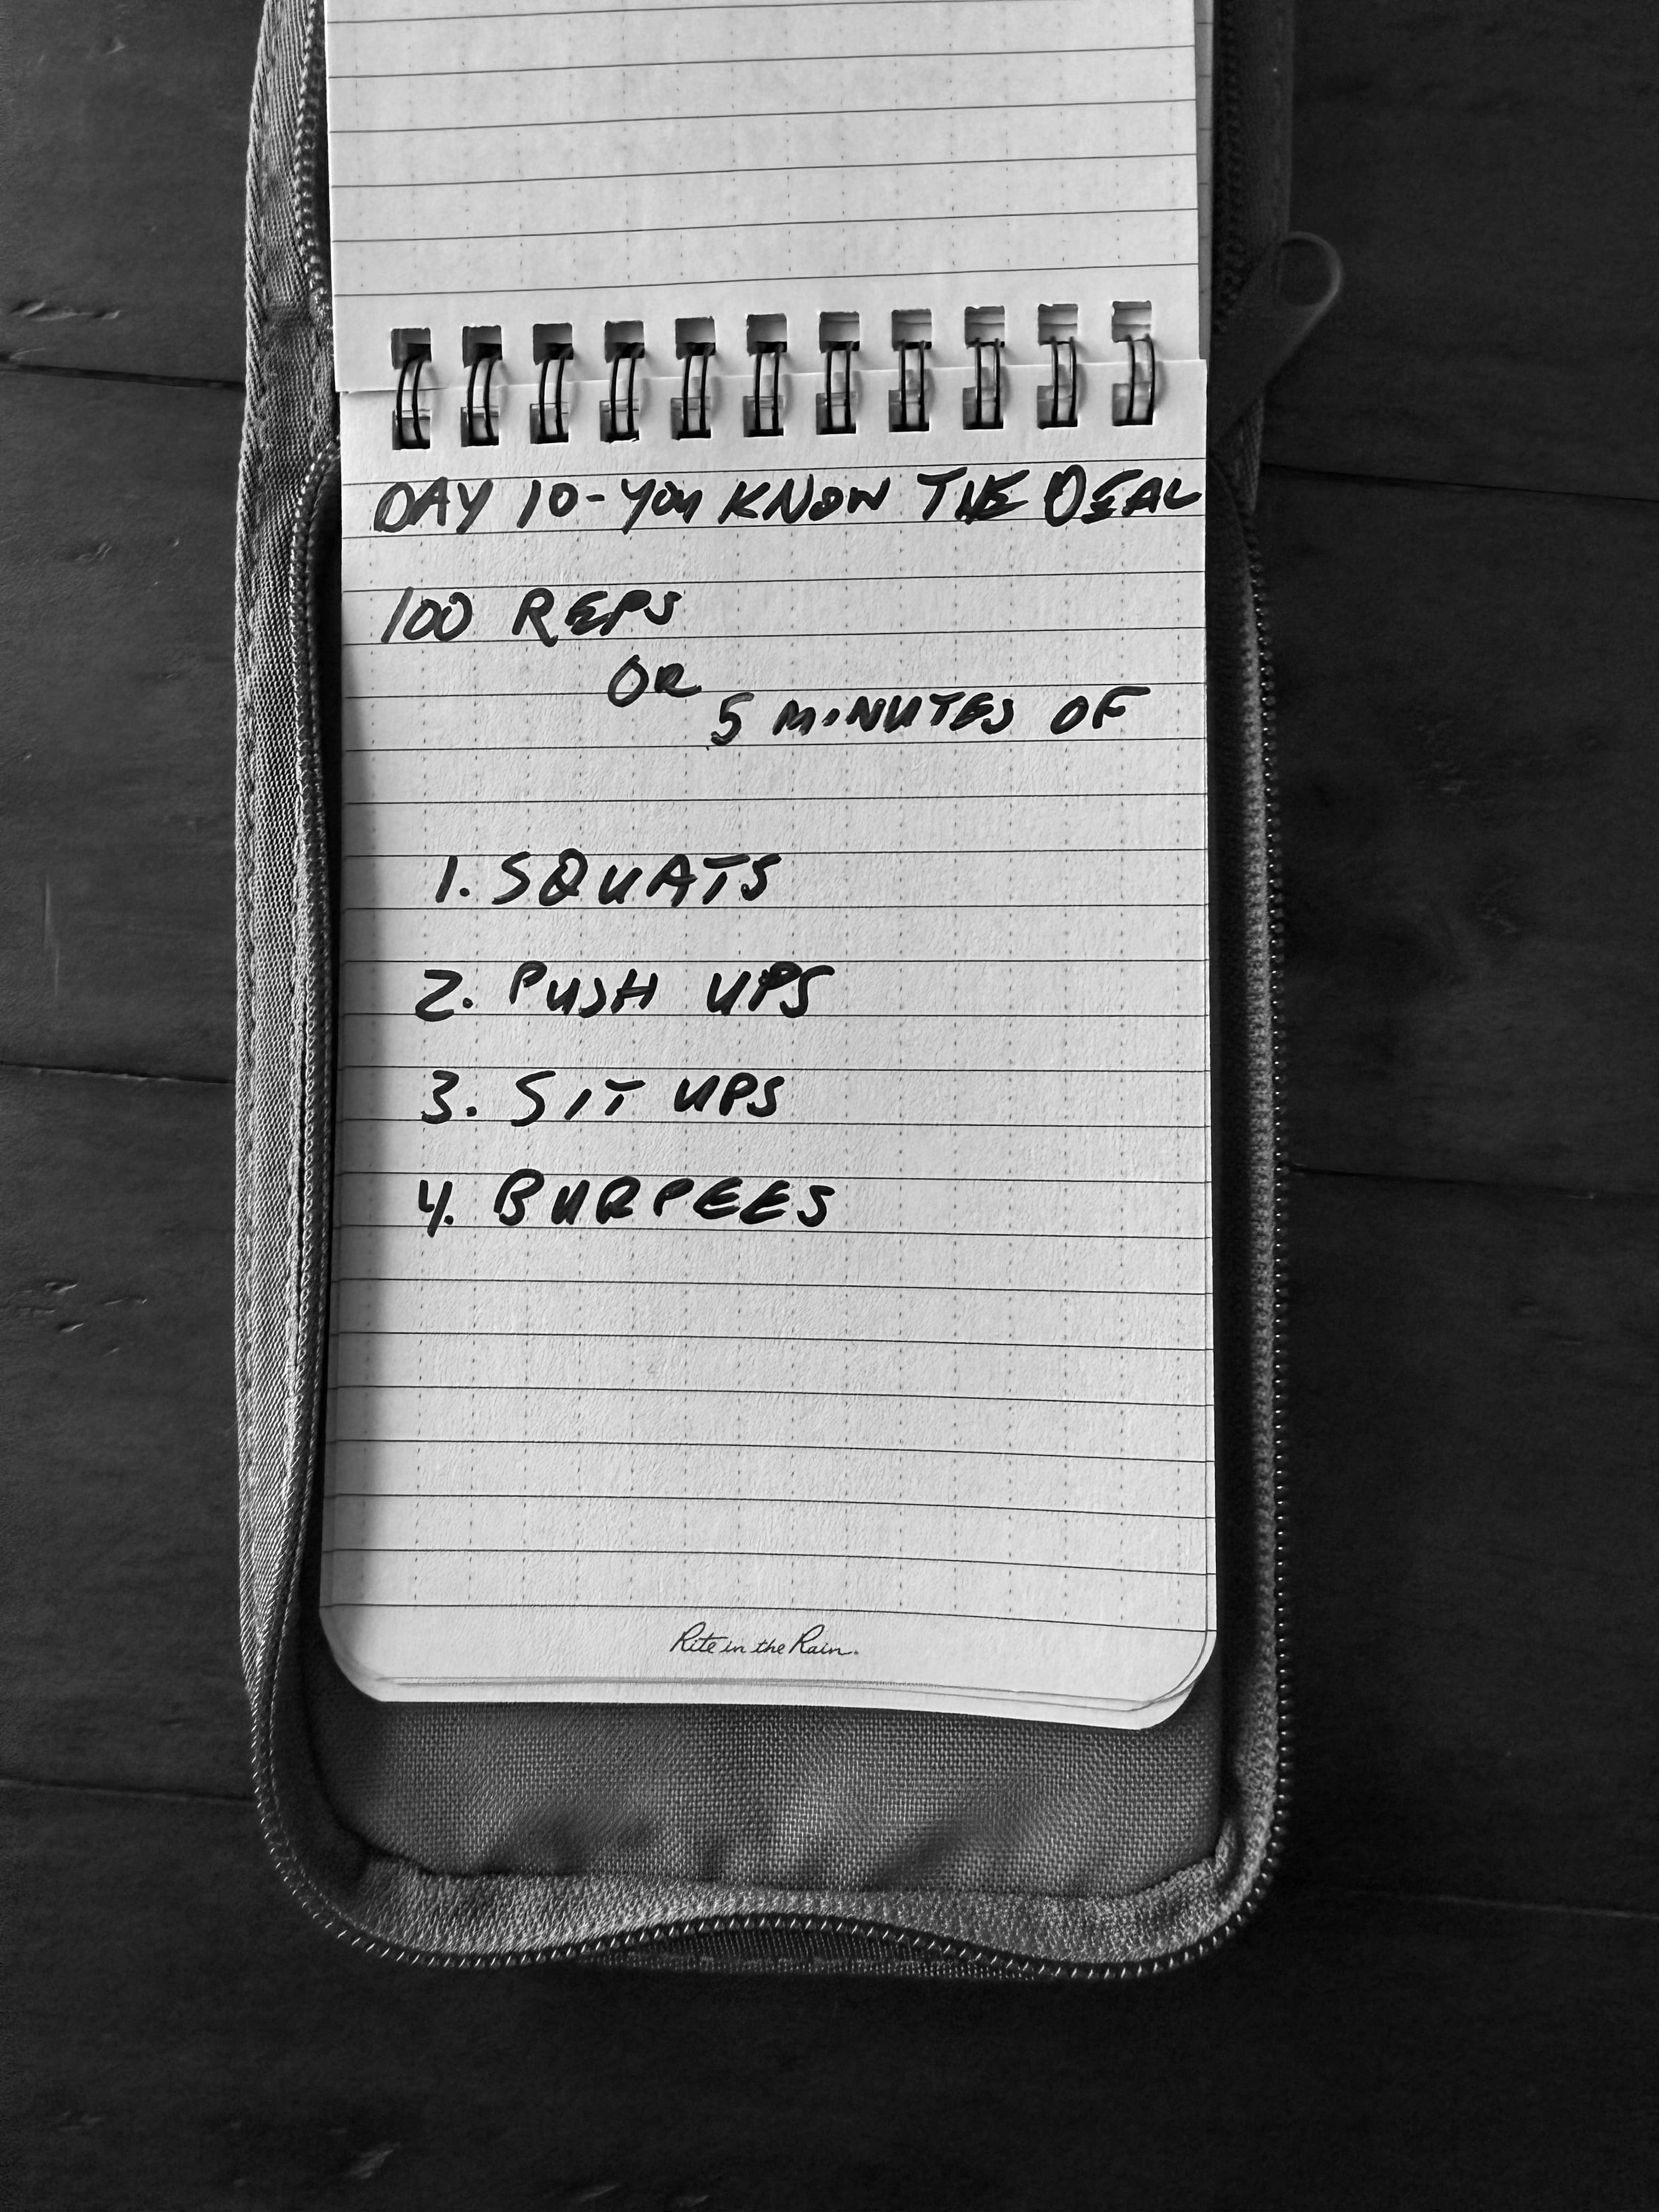 DAY 10 - YOU KNOW THE DEAL
100 REPS
OR
5 MINUTES OF
1. SQUATS
2. PUSH UPS
3. SIT UPS
4. BURPEES
Rite in the Rain.